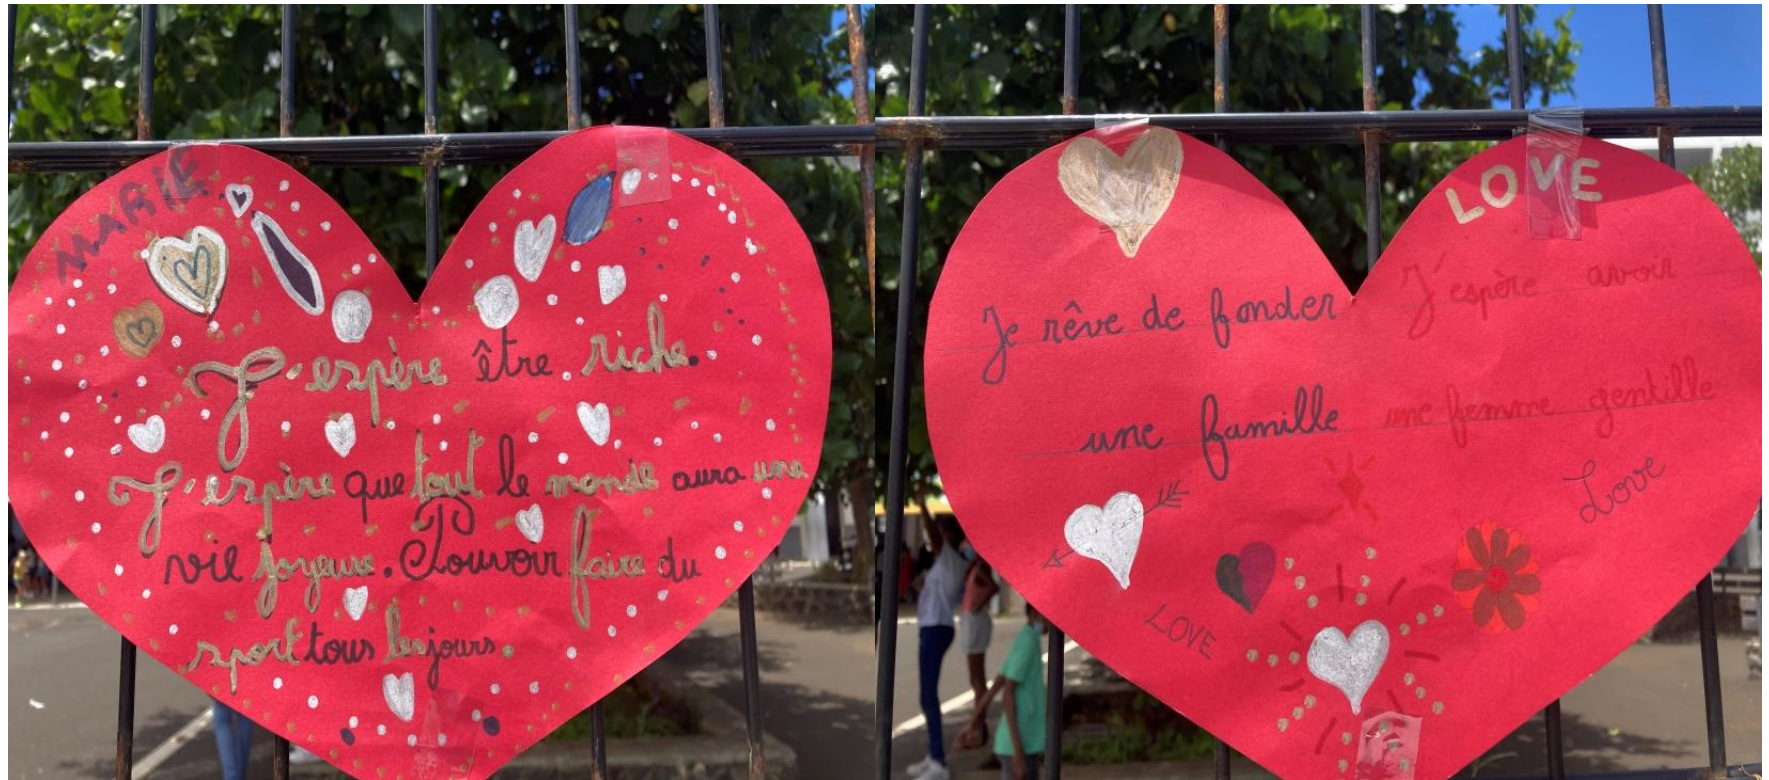 MARIE
J'espère être riche.
J'espère que tout le monde aura une
vie joyeuse. Pouvoir faire du
sport tous les jours
LOVE
Je rêve de fonder
une famille
J'espère avoir
une femme gentille
Love
LOVE